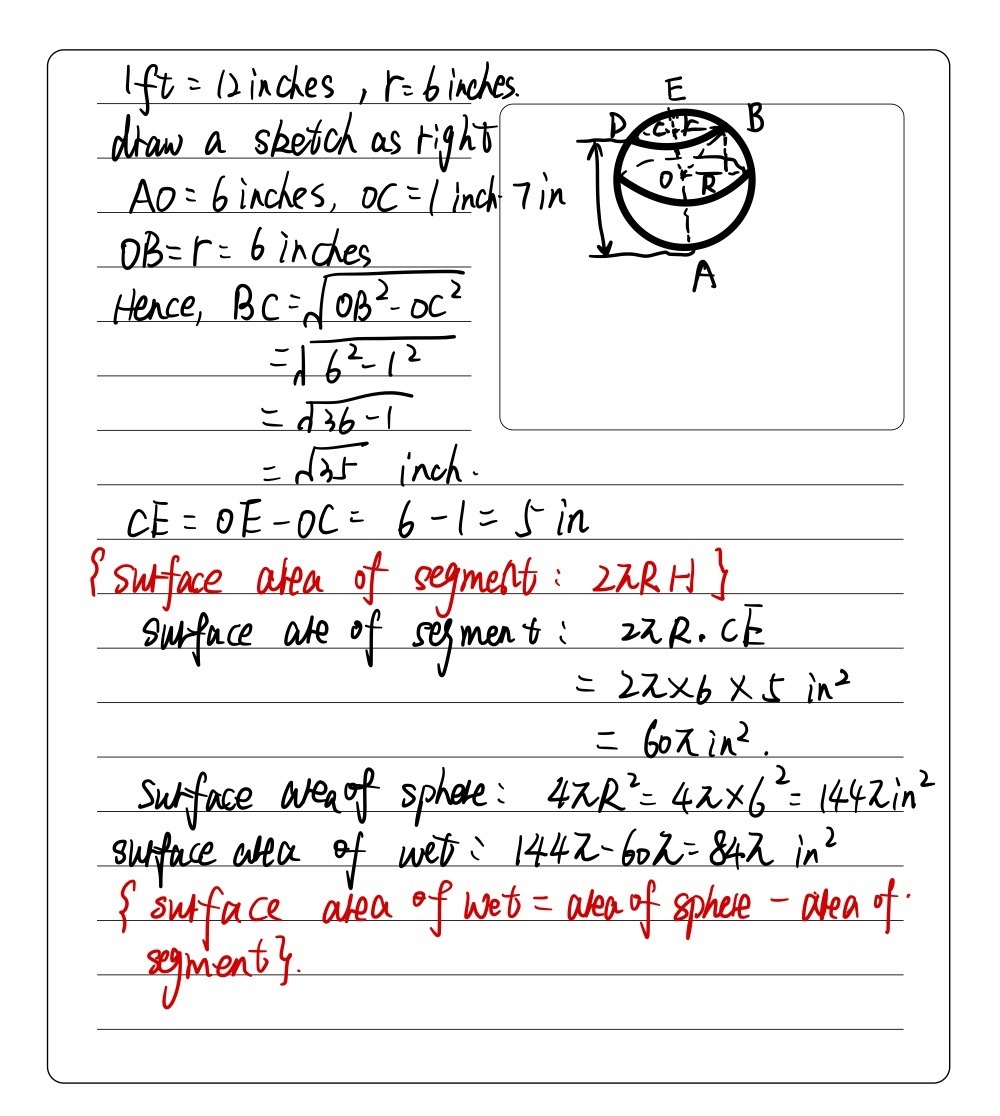 1ft = 12 inches , r = 6 inches.
draw a sketch as right
AO = 6 inches, OC = 1 inch 7 in
OB = r = 6 inches
Hence, BC = √OB² - OC²
= √6² - 1²
= √36 - 1
= √35 inch.
CE = OE - OC = 6 - 1 = 5 in
{ surface area of segment : 2πRH }
surface are of segment : 2πR . CE
= 2π × 6 × 5 in²
= 60π in² .
Surface area of sphere : 4πR² = 4π × 6² = 144π in²
surface area of wet : 144π - 60π = 84π in²
{ surface area of wet = area of sphere - area of
segment }.
E
D C r B
O R
A